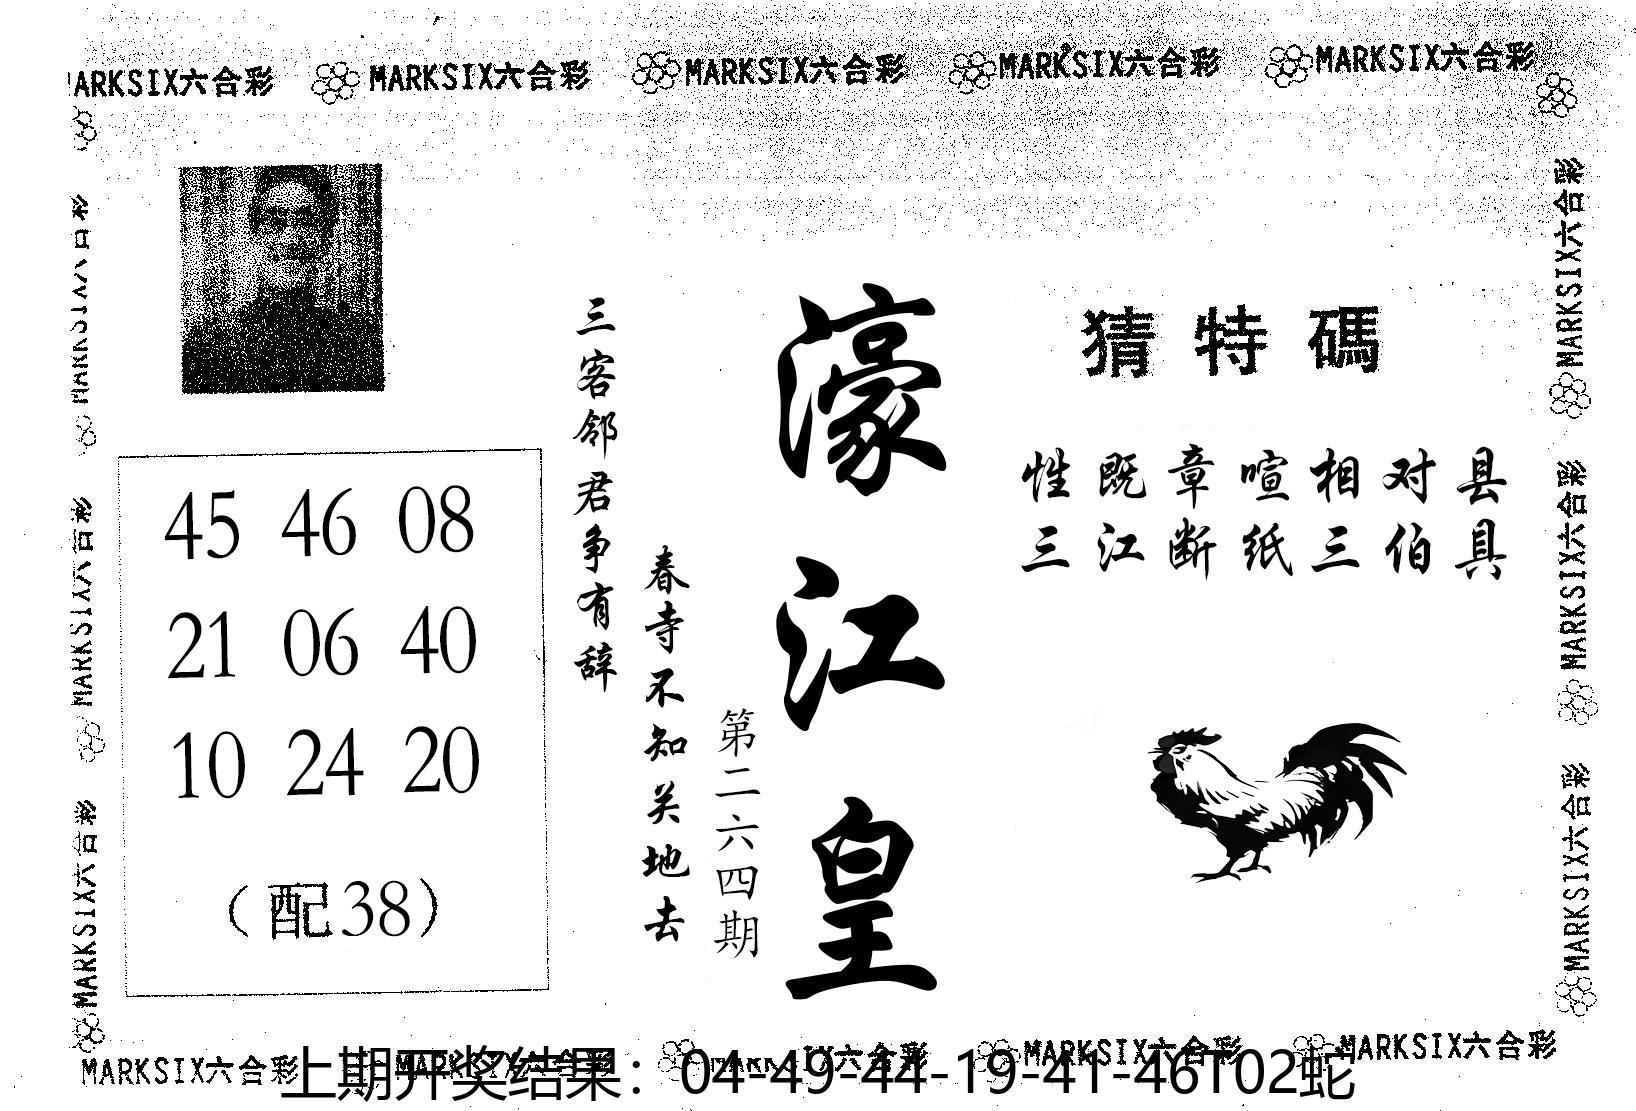 MARKSIX六合彩 MARKSIX六合彩 MARKSIX六合彩 MARKSIX六合彩 MARKSIX六合彩
猜特碼
性既章喧相对县
三江断纸三伯具
濠江皇
第二六四期
春寺不知关地去
三客邻君争有辞
45 46 08
21 06 40
10 24 20
（配38）
MARKSIX六合彩
MARKSIX六合彩
MARKSIX六合彩
MARKSIX六合彩
MARKSIX六合彩
MARKSIX六合彩
MARKSIX六合彩 MARKSIX六合彩 MARKSIX六合彩
上期开奖结果：04-49-44-19-41-46T02蛇